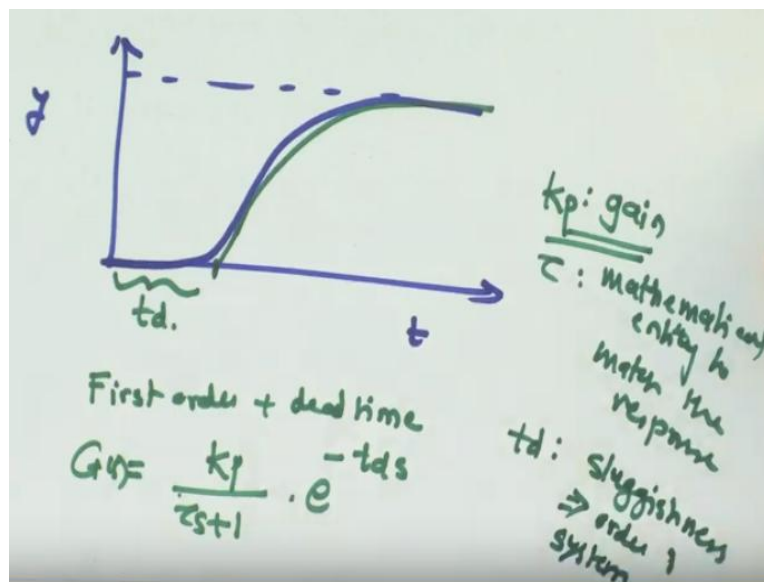 y
td.
t
First order + dead time
G(s) = kp / τs+1 . e^-tds
kp: gain
τ: mathematical
entity to
match the
response
td: sluggishness
⇒ order,
system